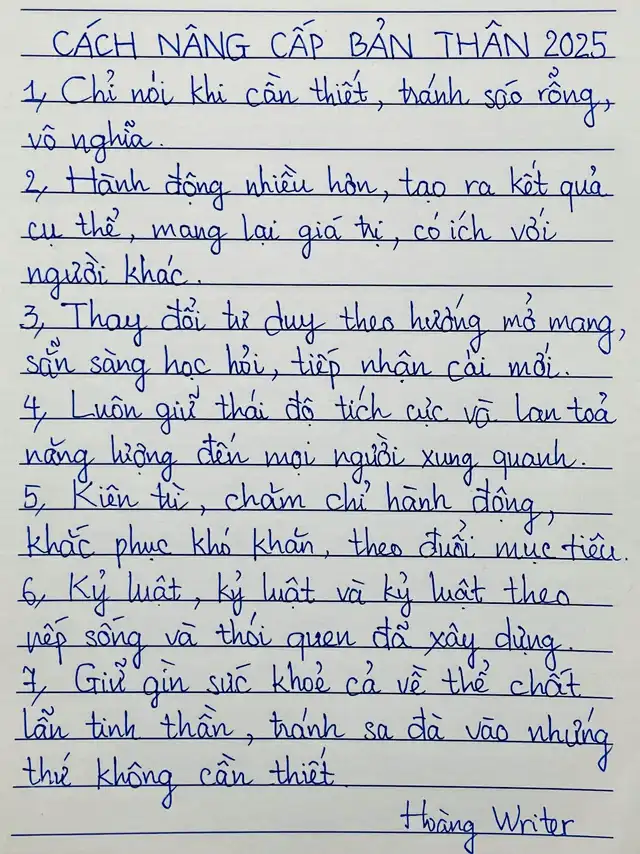 CÁCH NÂNG CẤP BẢN THÂN 2025
1, Chỉ nói khi cần thiết, tránh sáo rỗng,
vô nghĩa.
2, Hành động nhiều hơn, tạo ra kết quả
cụ thể, mang lại giá trị, có ích với
người khác.
3, Thay đổi tư duy theo hướng mở mang,
sẵn sàng học hỏi, tiếp nhận cái mới.
4, Luôn giữ thái độ tích cực và lan toả
năng lượng đến mọi người xung quanh.
5, Kiên trì, chăm chỉ hành động,
khắc phục khó khăn, theo đuổi mục tiêu.
6, Kỷ luật, kỷ luật và kỷ luật theo
nếp sống và thói quen đã xây dựng.
7, Giữ gìn sức khoẻ cả về thể chất
lẫn tinh thần, tránh sa đà vào những
thứ không cần thiết
Hoàng Writer